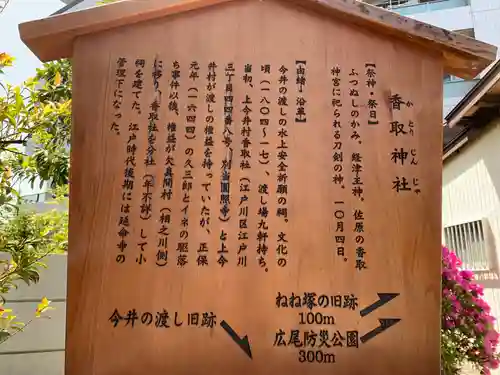 香取神社
かとりじんじゃ
【祭神・祭日】
ふつぬしのかみ、経津主神。佐原の香取
神宮に祀られる刀剣の神。一〇月四日。
【由緒・沿革】
今井の渡しの水上安全祈願の祠。文化の
頃（一八〇四〜一七）、渡し場九軒持ち。
三丁目四四番八号、別当圓照寺）と上今
治、上今井村香取社（江戸川区江戸川
井村が渡しの権益を持っていたが、正保
元年（一六四四）の久三郎とイネの駆落
ち事件以後、権益が欠真間村（相之川側）
に移り、香取社を分社（年不詳）して小
祠を建てた。江戸時代後期には延命寺の
管理下になった。
今井の渡し旧跡
ねね塚の旧跡
100m
広尾防災公園
300m